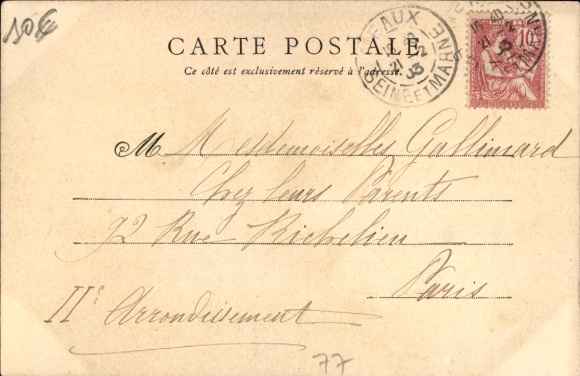 10€
CARTE POSTALE
Ce côté est exclusivement réservé à l'adresse.
MEAUX
21
03
SEINE ET MARNE
10
M Mesdemoiselles Gallimard
Chez leurs Parents
92 Rue Richelieu
Paris
IIe Arrondissement
77